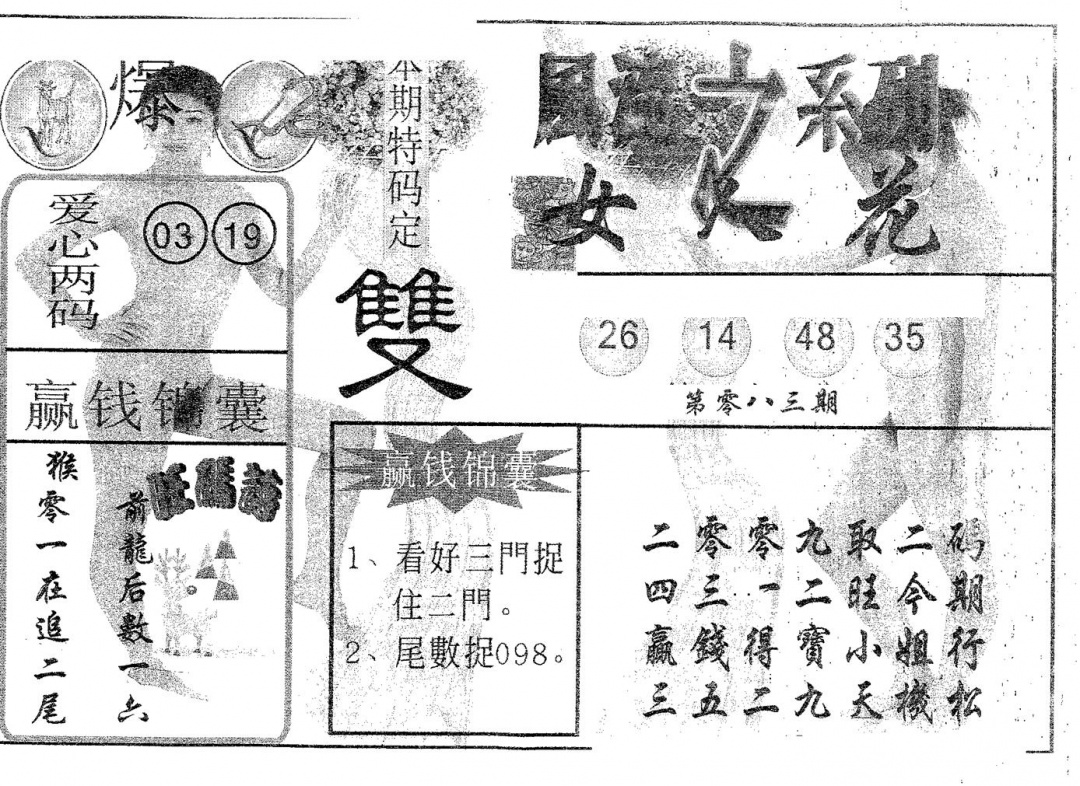 爆
本期特码定
雙
爱心两码
03 19
赢钱锦囊
旺碼詩
前龍后数一六
猴零一在追二尾
赢钱锦囊
1、看好三門捉
住二門。
2、尾數捉098。
之系列
女人花
26 14 48 35
第零八三期
码期行松
二今姐機
取旺小天
九二寶九
零一得二
零三錢五
二四贏三